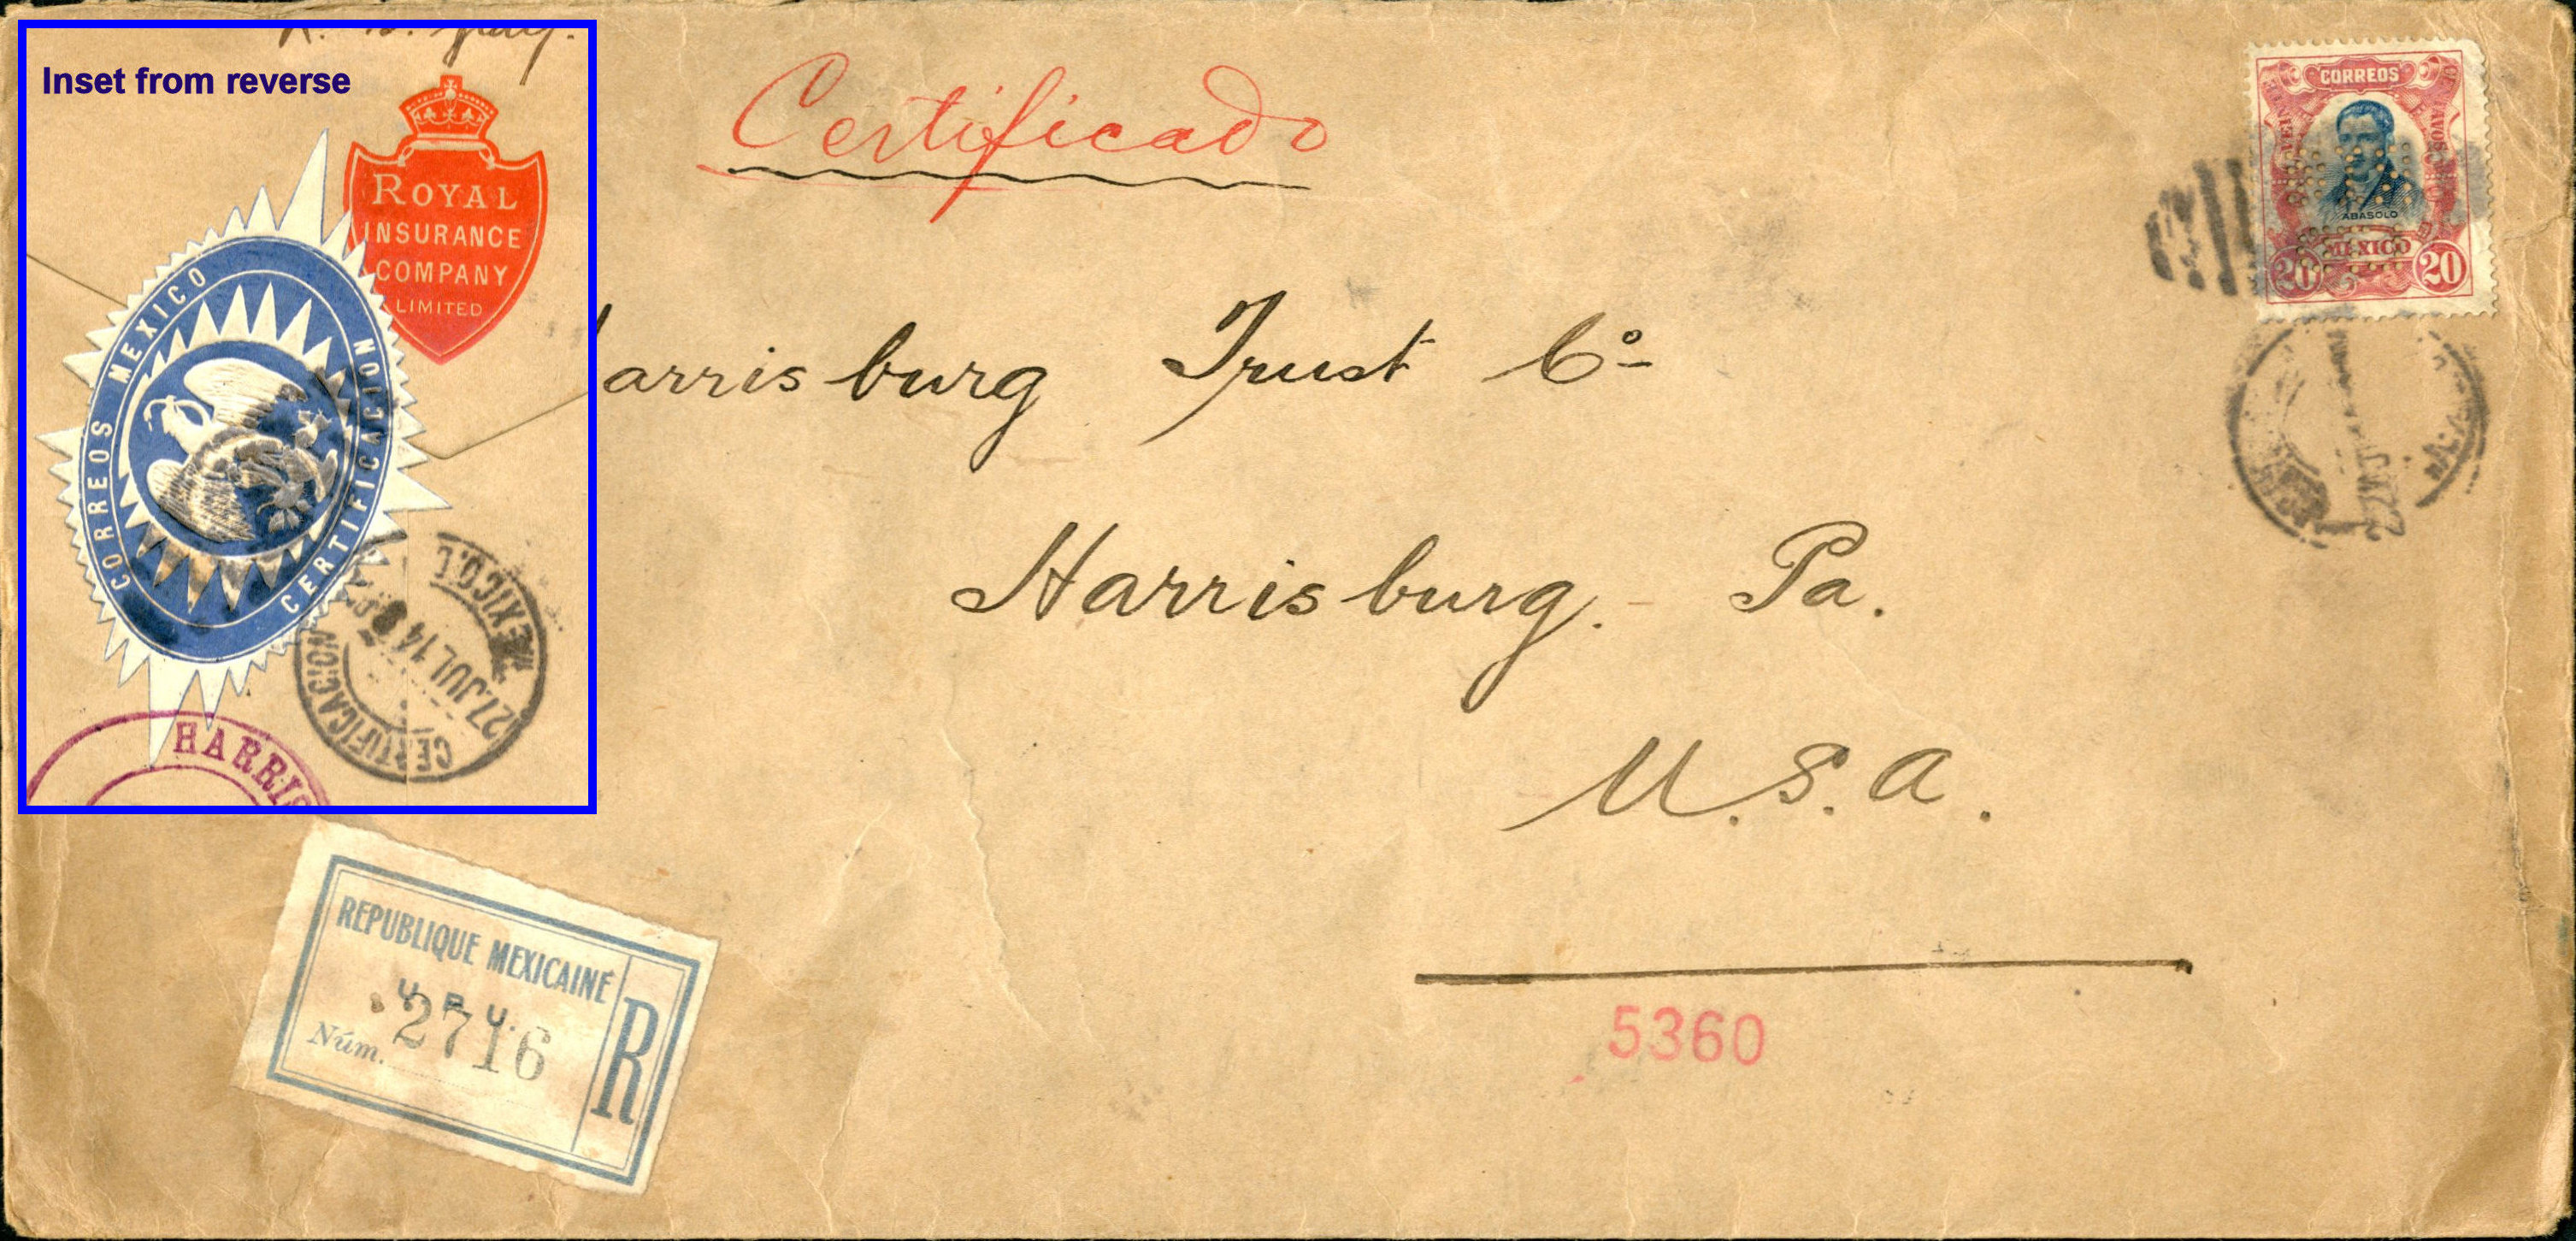 Inset from reverse
ROYAL
INSURANCE
COMPANY
LIMITED
CORREOS MEXICO
CERTIFICACION
MEXICO.
27.JUL 14
CERTIFICACION
HARRIS
Certificado
CORREOS
ABASOLO
MEXICO
20 20
arrisburg Trust Co
Harrisburg. Pa.
U.S.A.
5360
REPUBLIQUE MEXICAINE
U.P.U.
Núm. 2716
R